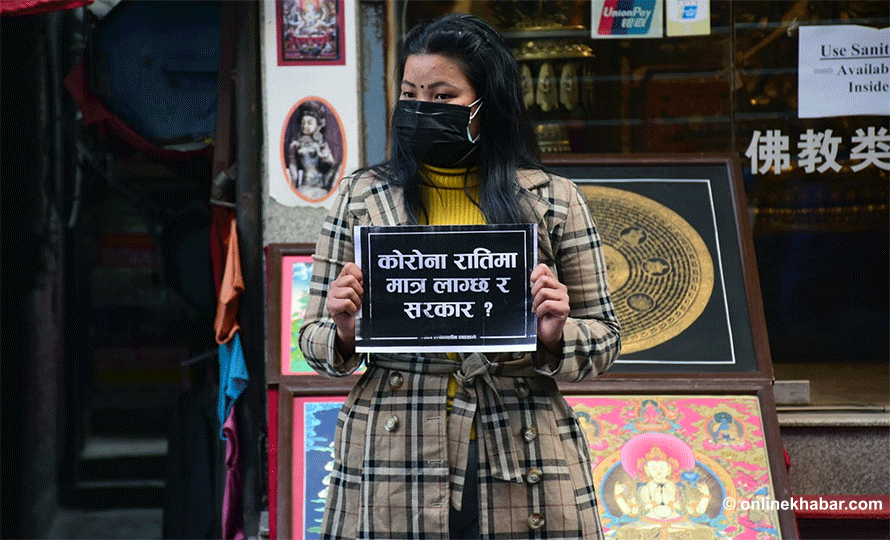 UnionPay
Use Sanit
Availab
Inside
佛教类
कोरोना रातिमा
मात्र लाग्छ र
सरकार ?
© onlinekhabar.com